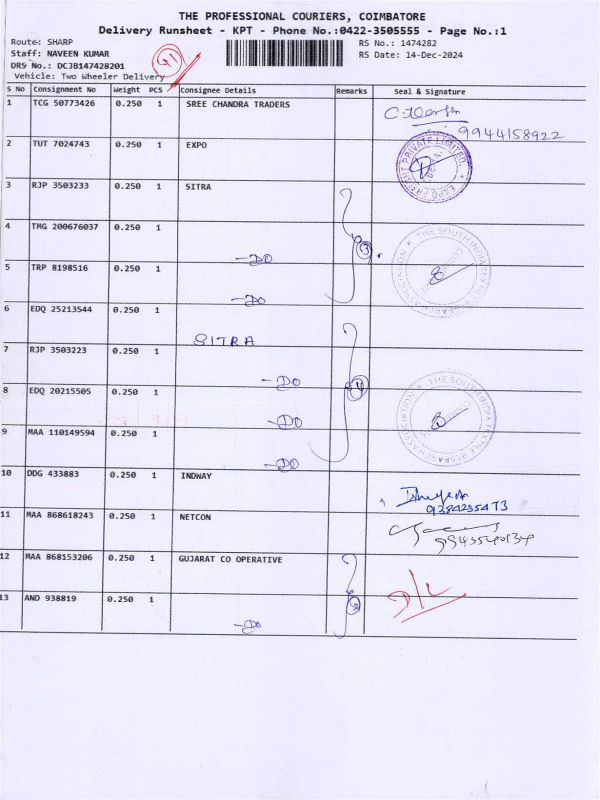 THE PROFESSIONAL COURIERS, COIMBATORE
Delivery Runsheet - KPT - Phone No.:0422-3505555 - Page No.:1
Route: SHARP
RS No.: 1474282
Staff: NAVEEN KUMAR
RS Date: 14-Dec-2024
DRS No.: DCJB147428201
Vehicle: Two Wheeler Delivery
S No Consignment No Weight PCS Consignee Details Remarks Seal & Signature
1 TCG 50773426 0.250 1 SREE CHANDRA TRADERS
9944158922
2 TUT 7024743 0.250 1 EXPO
3 RJP 3503233 0.250 1 SITRA
4 TMG 200676037 0.250 1
-DO 3
5 TRP 8198516 0.250 1
-DO
6 EDQ 25213544 0.250 1
SITRA
7 RJP 3503223 0.250 1
-DO 4
8 EDQ 20215505 0.250 1
-DO
9 MAA 110149594 0.250 1
-DO
10 DDG 433883 0.250 1 INDWAY
9284235473
11 MAA 868618243 0.250 1 NETCON
12 MAA 868153206 0.250 1 GUJARAT CO OPERATIVE
13 AND 938819 0.250 1
-DO